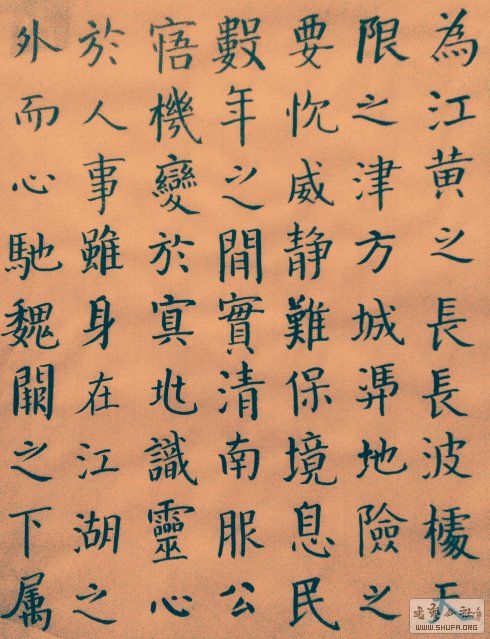 為江黄之長長波據天
限之津方城馮地險之
要忱威静難保境息民
數年之間實清南服公
寤機變於冥兆識靈心
於人事雖身在江湖之
外而心馳魏闕之下属
WWW.SHUFA.ORG